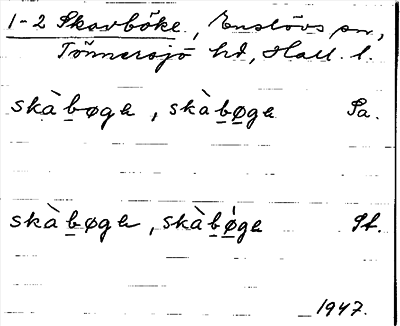 1-2 Skavböke, Enslövs sn,
Tönnersjö hd, Hall. l.
skàbøgə, skàbøgə Sa.
skàbøgə, skàbø̀gə St.
1947.